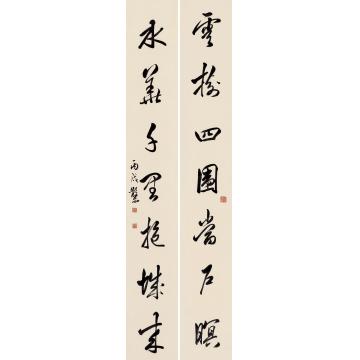 雲樹四圍當戶暝
水華千里抱城來
丙戌